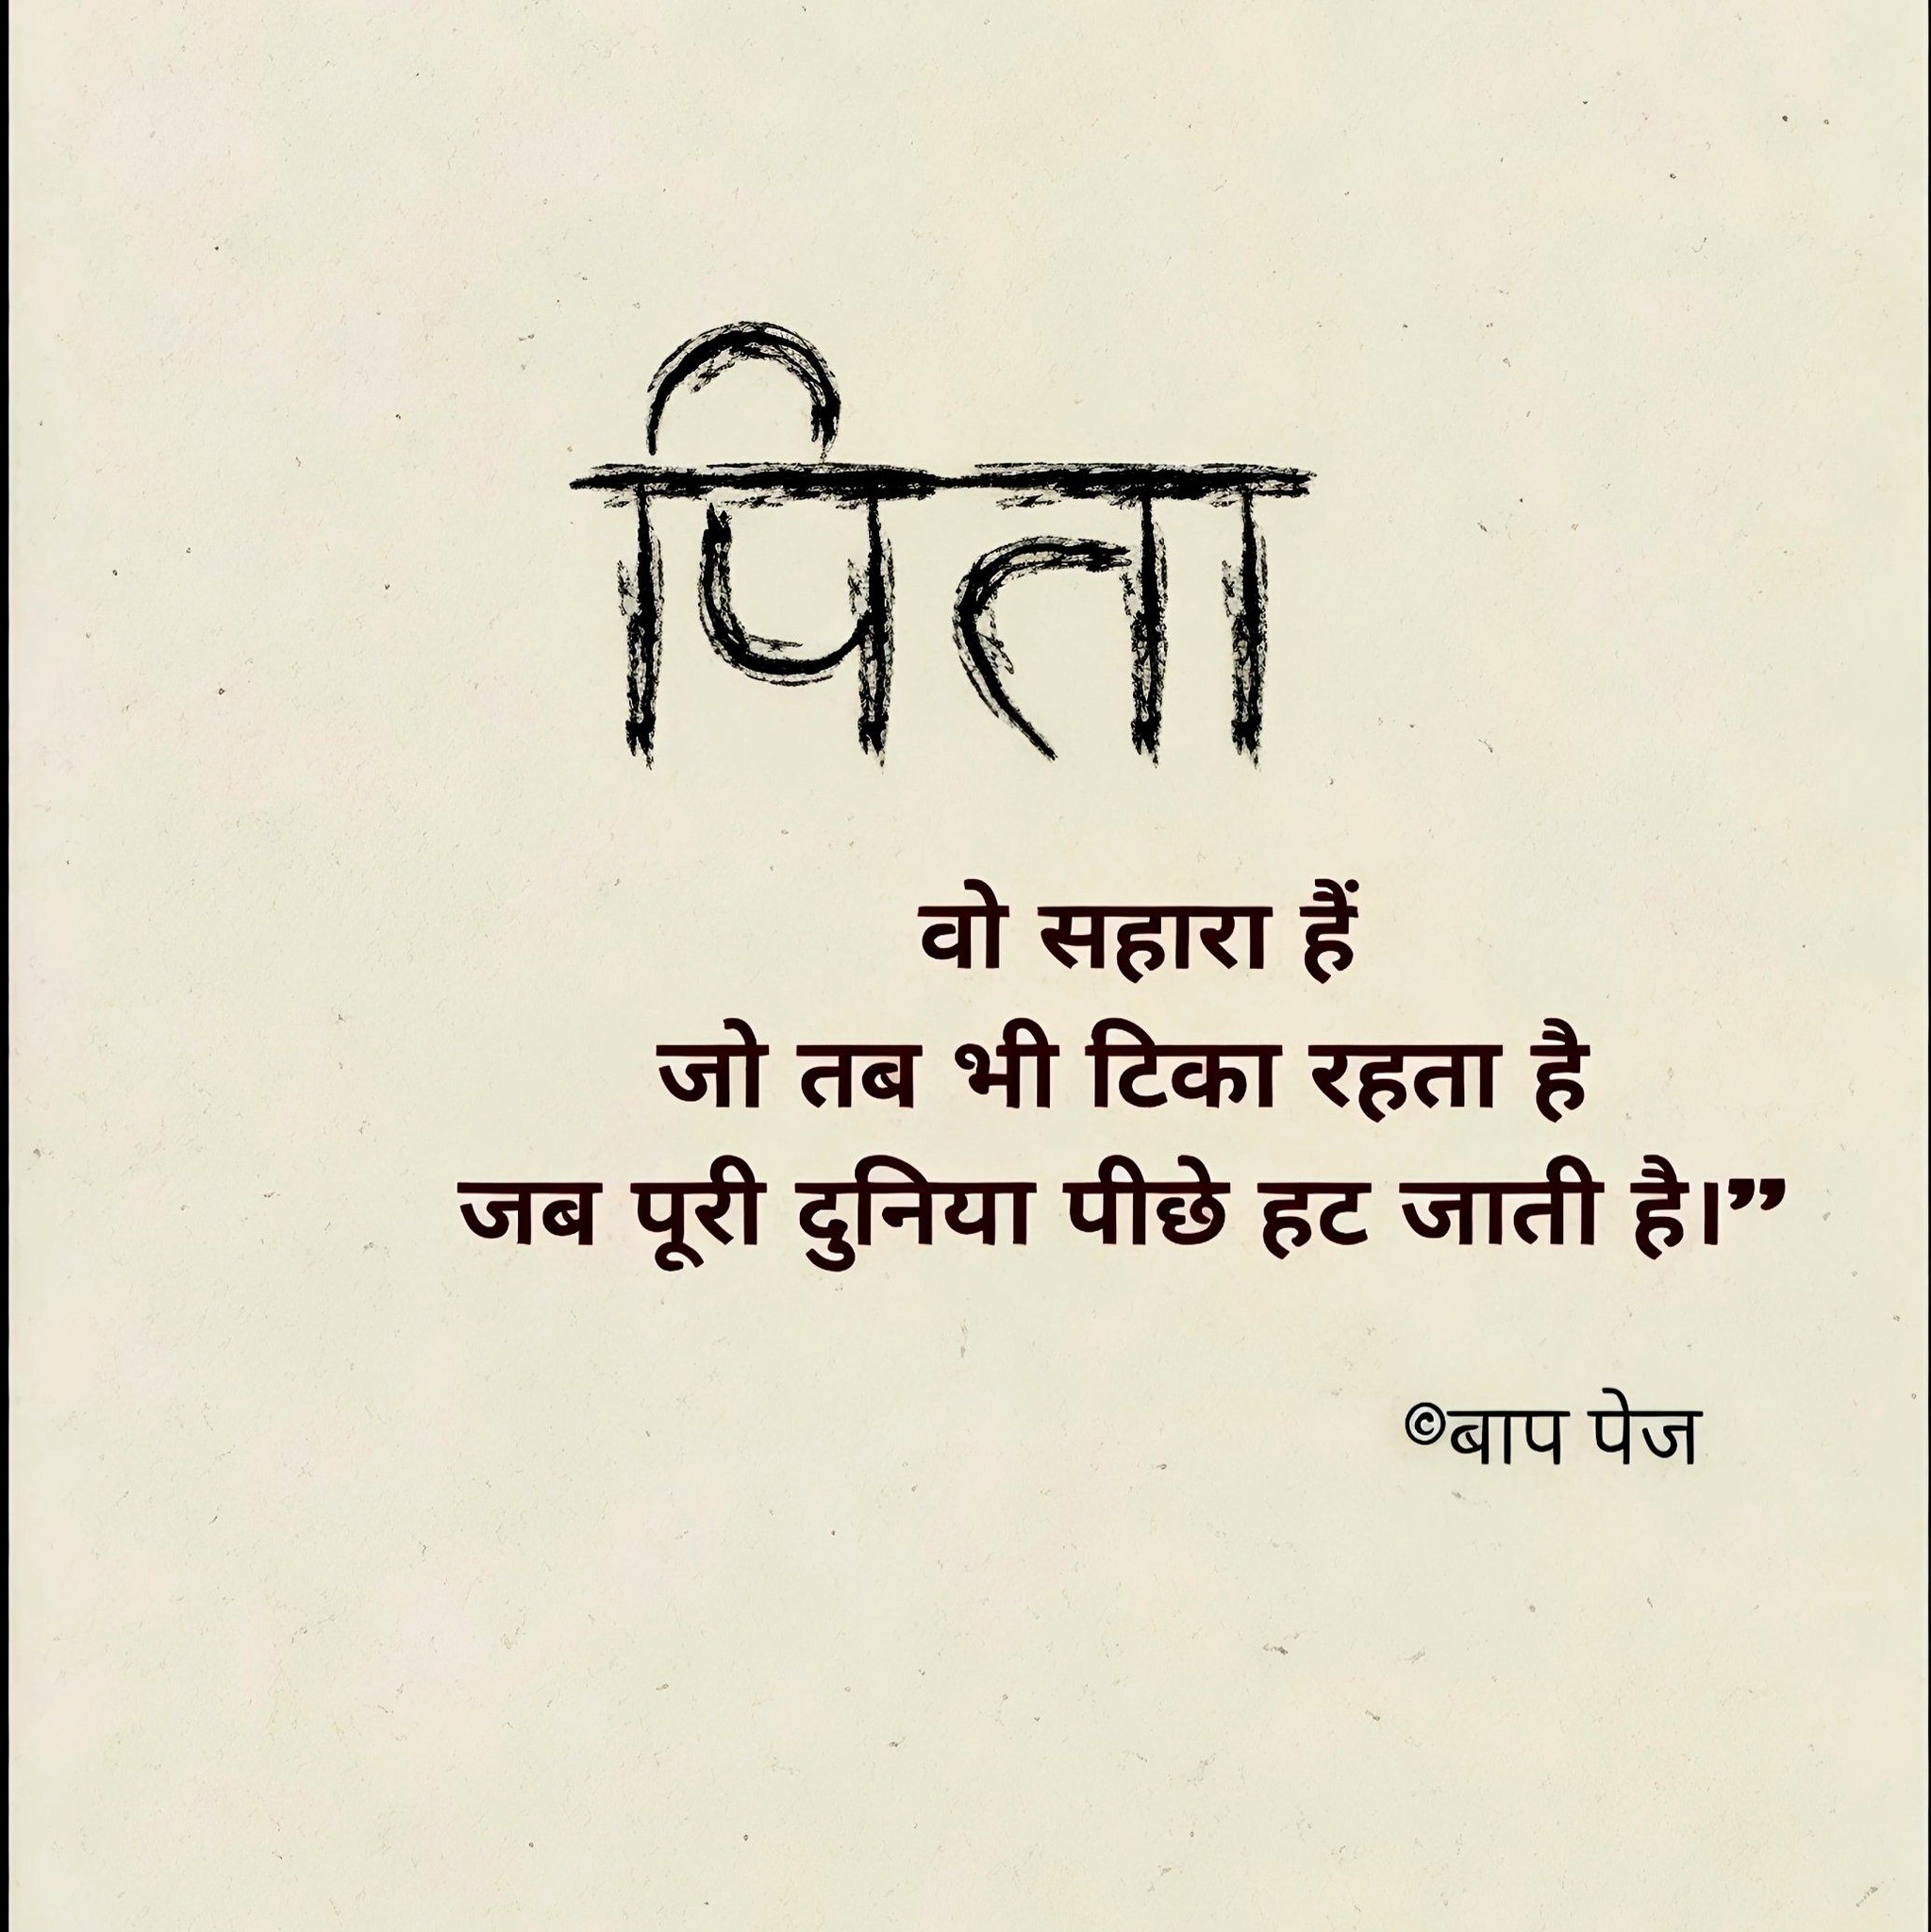 पिता
वो सहारा हैं
जो तब भी टिका रहता है
जब पूरी दुनिया पीछे हट जाती है।”
©बाप पेज